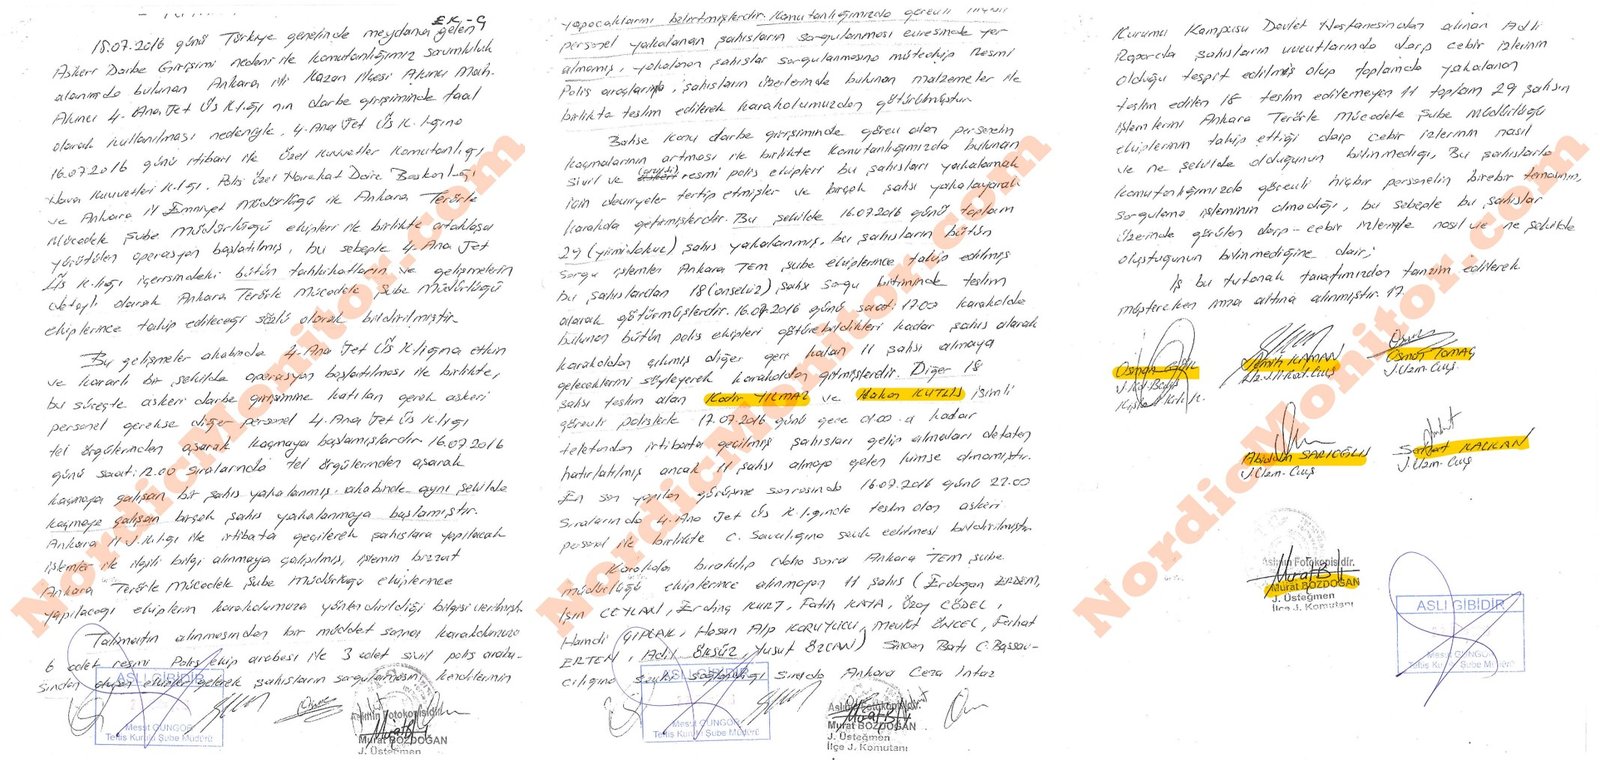 EK-9
15.07.2016 günü Türkiye genelinde meydana gelen
Askeri Darbe Girişimi nedeni ile komutanlığımız sorumluluk
alanında bulunan Ankara ili Kazan ilçesi Akıncı Mah.
Akıncı 4. Ana Jet Üs K.lığı'nın darbe girişiminde faal
olarak kullanılması nedeniyle, 4. Ana Jet Üs K.lığına
16.07.2016 günü itibari ile Özel Kuvvetler Komutanlığı
Hava Kuvvetleri K.lığı, Polis Özel Harekat Daire Başkanlığı
ve Ankara İl Emniyet Müdürlüğü ile Ankara Terörle
Mücadele Şube Müdürlüğü ekipleri ile birlikte ortaklaşa
yürütülen operasyon başlatılmış, bu sebeple 4. Ana Jet
Üs K.lığı içerisindeki bütün tahkikatların ve gelişmelerin
detaylı olarak Ankara Terörle Mücadele Şube Müdürlüğü
ekiplerince takip edileceği sözlü olarak bildirilmiştir.
Bu gelişmeler akabinde 4. Ana Jet Üs K.lığına etkin
ve kararlı bir şekilde operasyon başlatılması ile birlikte,
bu süreçte askeri darbe girişimine katılan gerek askeri
personel gerekse diğer personel 4. Ana Jet Üs K.lığı
tel örgülerinden aşarak kaçmaya başlamışlardır. 16.07.2016
günü saat: 12.00 sıralarında tel örgülerinden aşarak
kaçmaya çalışan bir şahıs yakalanmış akabinde aynı şekilde
kaçmaya çalışan birçok şahıs yakalanmaya başlamıştır.
Ankara İl J. K.lığı ile irtibata geçilerek şahıslara yapılacak
işlemler ile ilgili bilgi alınmaya çalışılmış, işlemin bizzat
Ankara Terörle Mücadele Şube Müdürlüğü ekiplerince
yapılacağı ekiplerin karakolumuza yönlendirildiği bilgisi verilmiştir.
Talimatın alınmasından bir müddet sonra karakolumuza
6 adet resmi Polis ekip arabası ile 3 adet sivil polis araba-
sından oluşan ekipler gelerek şahısların sorgulamasını kendilerinin
ASLI GİBİDİR
Mesut GÜNGÖR
Tetis Kurulu Şube Müdürü
Aslının Fotokopisidir.
Murat BOZDOĞAN
J. Üsteğmen
yapacaklarını belirtmişlerdir. Komutanlığımızda görevli hiçbir
personel yakalanan şahısların sorgulanması evresinde yer
almamış, yakalanan şahıslar sorgulanmasına müteakip Resmi
Polis araçlarıyla, şahısların üzerlerinde bulunan malzemeler ile
birlikte teslim edilerek karakolumuzdan götürülmüştür.
Bahse konu darbe girişiminde görev alan personelin
kaçmalarının artması ile birlikte komutanlığımızda bulunan
sivil ve resmi polis ekipleri bu şahısları yakalamak
için devriyeler tertip etmişler ve birçok şahsı yakalayarak
karakola getirmişlerdir. Bu şekilde 16.07.2016 günü toplam
29 (yirmidokuz) şahıs yakalanmış, bu şahısların bütün
sorgu işlemleri Ankara TEM şube ekiplerince takip edilmiş
bu şahıslardan 18 (onsekiz) şahsı sorgu bitiminde teslim
alarak götürmüşlerdir. 16.07.2016 günü saat: 17.00 karakolda
bulunan bütün polis ekipleri götürebildikleri kadar şahıs alarak
karakoldan çıkmış diğer geri kalan 11 şahsı almaya
geleceklerini söyleyerek karakoldan gitmişlerdir. Diğer 18
şahsı teslim alan Kadir YILMAZ ve Hakan KUTLU isimli
görevli polislerle 17.07.2016 günü gece 01.00'a kadar
telefondan irtibata geçilmiş şahısları gelip almaları defaten
hatırlatılmış ancak 11 şahsı almaya gelen kimse olmamıştır.
En son yapılan görüşme sonrasında 16.07.2016 günü 22.00
sıralarında 4. Ana Jet Üs K.lığında teslim olan askeri
personel ile birlikte C. Savcılığına sevk edilmesi bildirilmiştir.
Karakola bırakılıp daha sonra Ankara TEM şube
müdürlüğü ekiplerince alınmayan 11 şahıs (Erdoğan ERDEM,
Işın CEYLAN, Erdinç KURT, Fatih KAYA, Özay CÖDEL,
Hamdi ÇIPLAK, Hasan Alp KORUYUCU, Mevlüt ÖNCEL, Ferhat
ERTEN, Adil ÖKSÜZ, Yusuf ÖZCAN) Sincan Batı C. Başsav-
cılığına sevki sağlandığı sırada Ankara Ceza İnfaz
ASLI GİBİDİR
Mesut GÜNGÖR
Tetis Kurulu Şube Müdürü
Aslının Fotokopisidir.
Murat BOZDOĞAN
J. Üsteğmen
İlçe J. Komutanı
Kurumu Kampüsü Devlet Hastanesinden alınan Adli
Raporda şahısların vücutlarında darp cebir izlerinin
olduğu tespit edilmiş olup toplamda yakalanan
teslim edilen 18 teslim edilemeyen 11 toplam 29 şahısın
işlemlerini Ankara Terörle Mücadele Şube Müdürlüğü
ekiplerinin takip ettiği darp cebir izlerinin nasıl
ve ne şekilde olduğunun bilinmediği, Bu şahıslarla
komutanlığımızda görevli hiçbir personelin birebir temasının,
sorgulama işleminin olmadığı, bu sebeple bu şahıslar
üzerinde görülen darp-cebir izleriyle nasıl ve ne şekilde
oluştuğunun bilinmediğine dair;
İş bu tutanak tarafımızdan tanzim edilerek
müştereken imza altına alınmıştır. 17
Osman
Semih KAMAN
Osman TOMAÇ
J. Uzm. Çvş.
Abidin SARIOĞLU
J. Uzm. Çvş
Serhat KALKAN
J. Uzm. Çvş
Aslının Fotokopisidir.
Murat BOZDOĞAN
J. Üsteğmen
İlçe J. Komutanı
ASLI GİBİDİR
Mesut GÜNGÖR
Tetis Kurulu Şube Müdürü
NordicMonitor.com
NordicMonitor.com
NordicMonitor.com